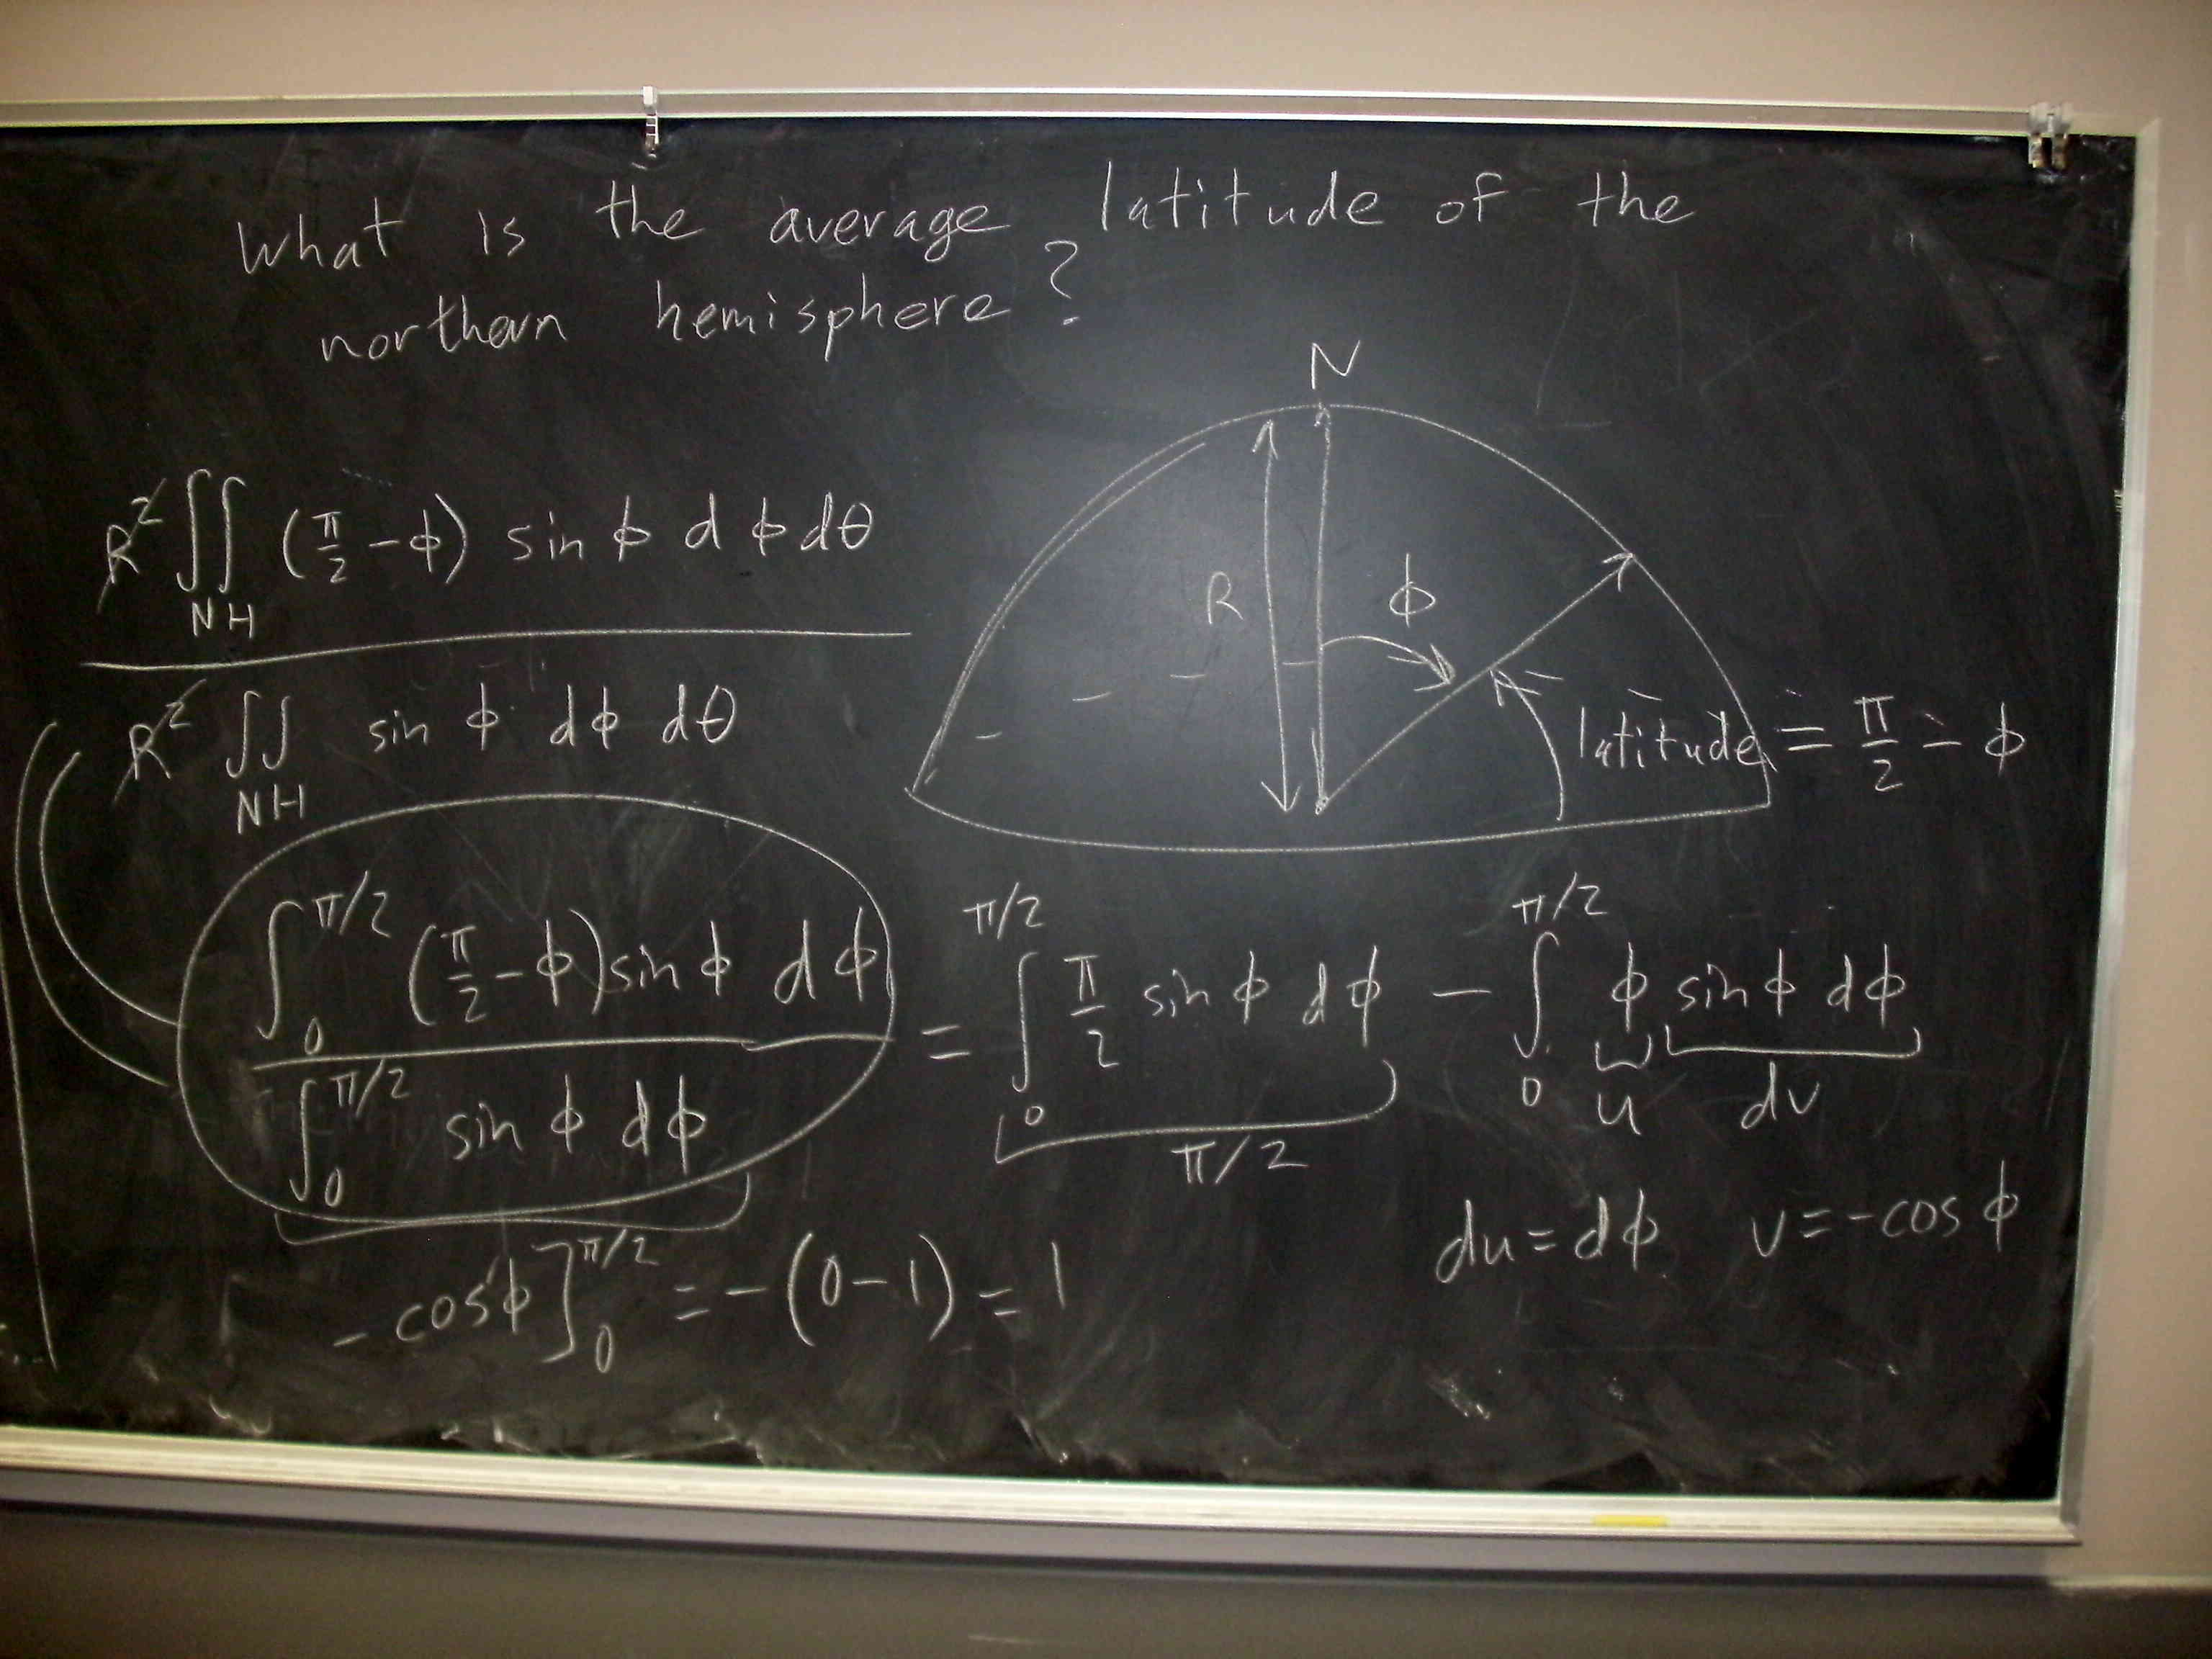 What is the average latitude of the
northern hemisphere?
N
R² ∬ (π/2 - ϕ) sin ϕ d ϕ dθ
NH
R² ∬ sin ϕ dϕ dθ
NH
R
ϕ
latitude = π/2 - ϕ
∫₀^π/2 (π/2 - ϕ) sin ϕ d ϕ
∫₀^π/2 sin ϕ dϕ
= ∫₀^π/2 π/2 sin ϕ d ϕ - ∫₀^π/2 ϕ sin ϕ dϕ
π/2
u dv
du = dϕ v = -cos ϕ
- cos ϕ ]₀^π/2 = -(0-1) = 1